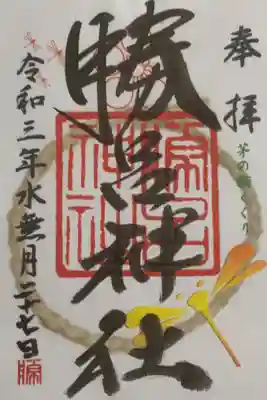 奉拝
茅の輪くぐり
勝呂神社
令和三年水無月二十七日